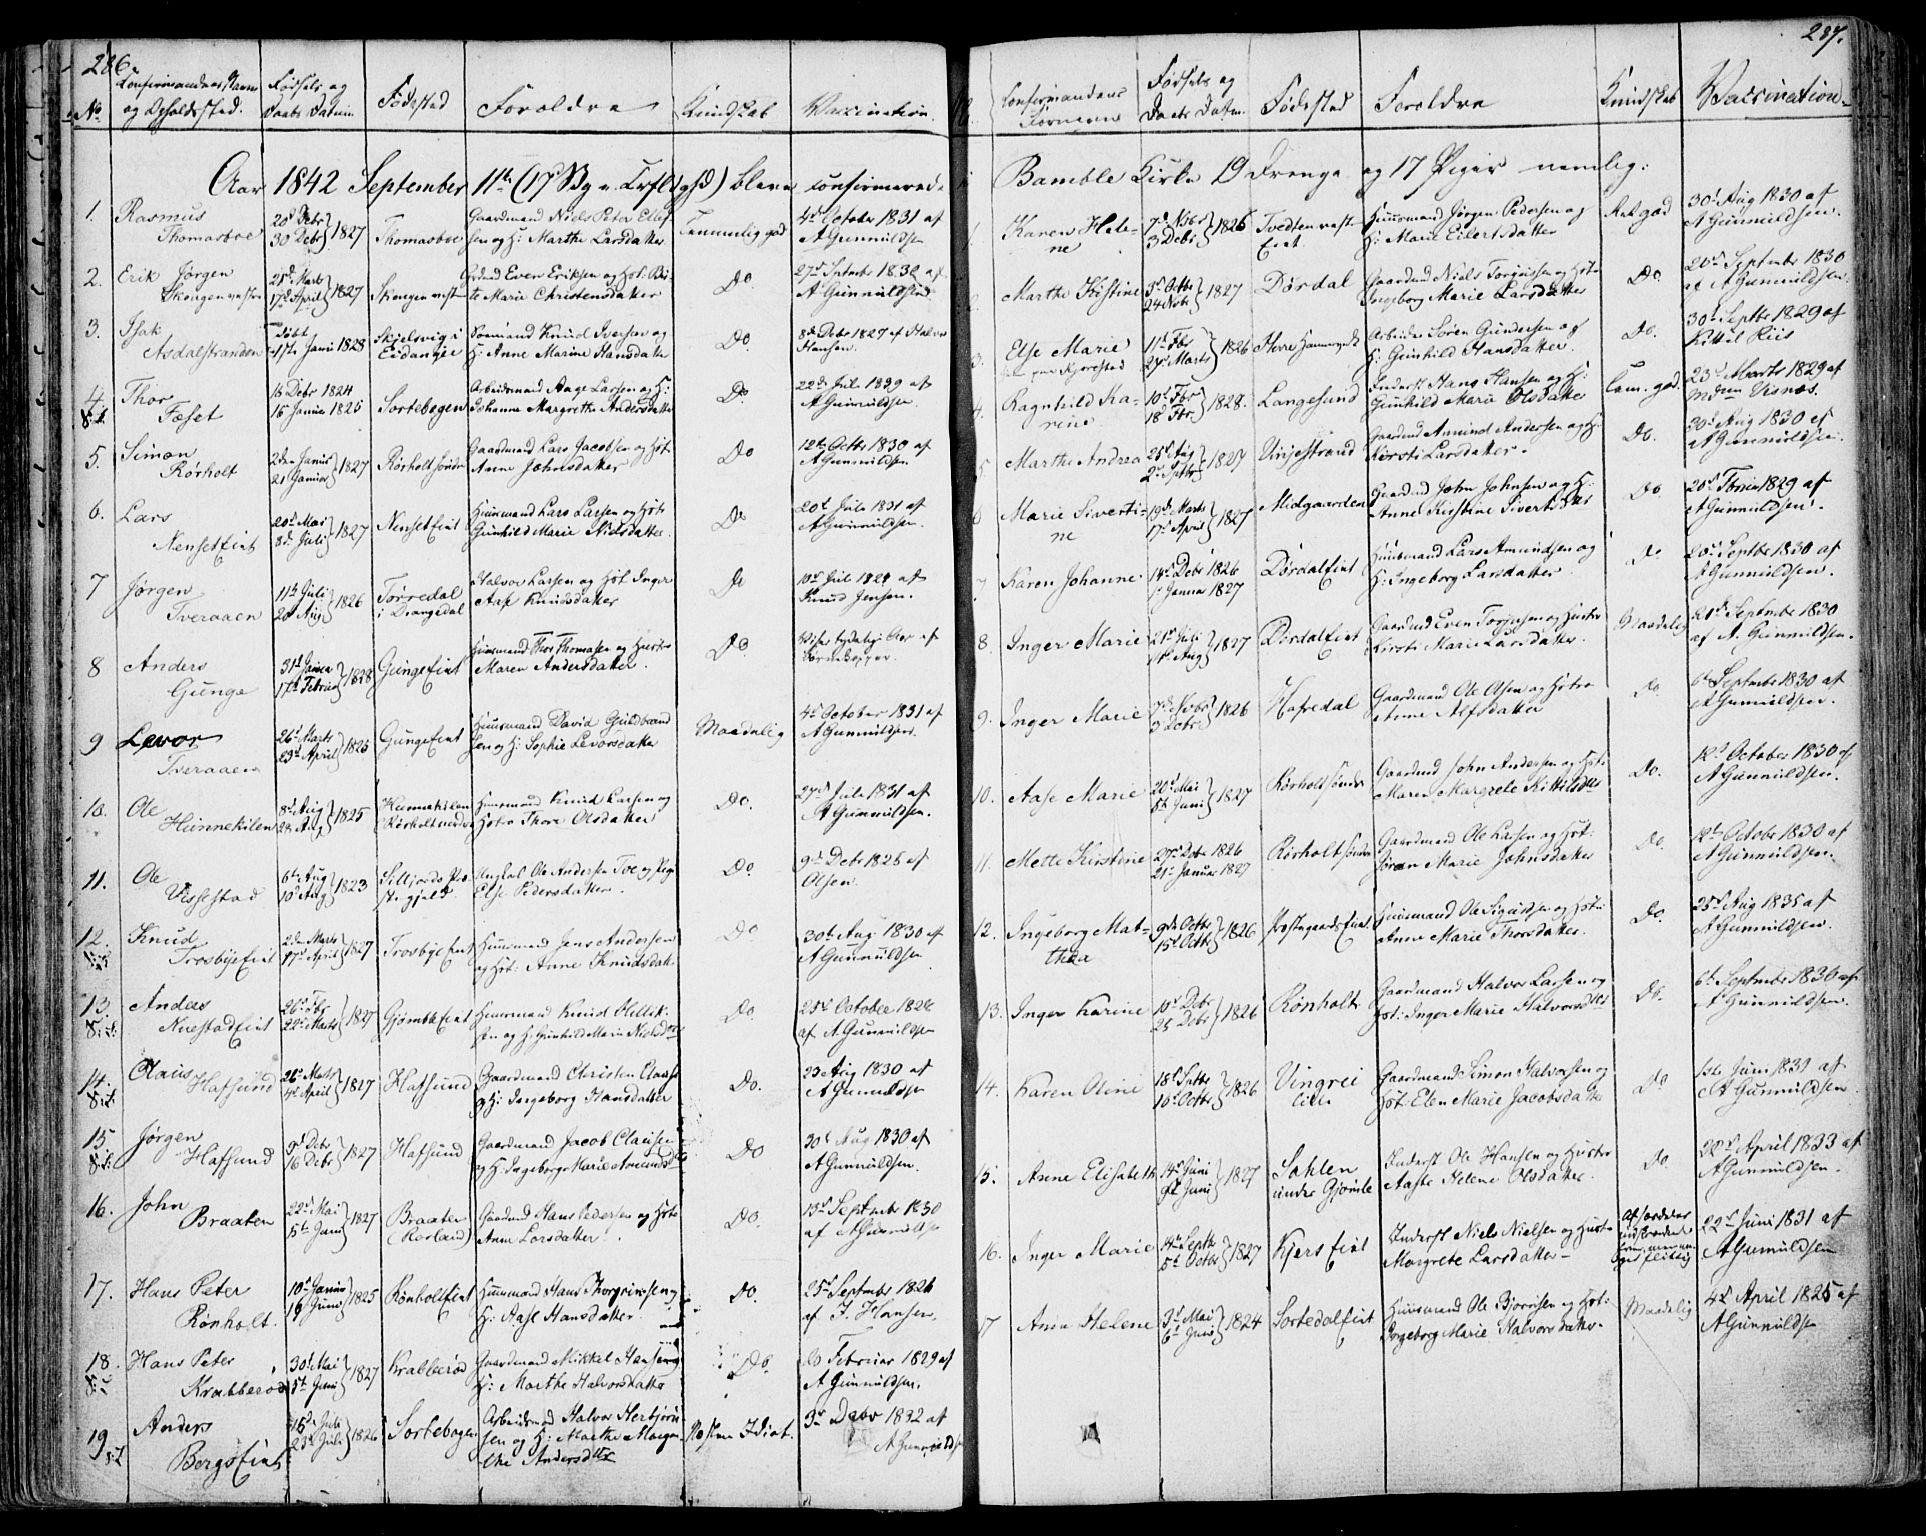 286.
No.
Confirmandens Navn
og Opholdssted.
Fødsels og
Daabs Datum
Fødested
Forældre
Kundskab
Vaccination.
Aar 1842 September 11te (17 Sg. e. Trfldghd) bleve confirmerede
1. Rasmus
Thomasboe
20d Febr
30 Debr } 1827
Thomasboe
Gaardmand Niels Peter Ellef
sen og H: Marthe Larsdatter
Temmelig god
4d October 1831 af
A Gunnuldsen
2. Erik Jørgen
Skougen vestre
25d Marts
17d April } 1827
Skougen vestr
Grdmd Even Eriksen og Hst: Bir
te Marie Christensdatter
Do
27d Septmbr 1832 af
A Gunnuldsen
3. Isak
Asdalstranden
Døbt
1ste Janu 1828
Skjelsvig i
Eidanger
Sømand Knud Iversen og
H: Anne Marine Hansdatter
Do
8de Debr 1827 af Halvor
Hansen.
4. Thor
Foset
16 Debr 1824
16 Januar 1825
Sortebogen
Arbeidsmand Aage Larsen og H:
Johanne Margrethe Andersdatter
Do
22d Juli 1829 af
A Gunnuldsen
5. Simon
Rørholt
2den Januar
21 Januar } 1827
Rørholt søndre
Gaardmand Lars Jacobsen og Hst:
Anne Johnsdatter
Do
12te Octbr 1830 af
A Gunnuldsen
6. Lars
Nenseteiet
20d Mai
8d Juli } 1827
Nenseteiet
Huusmand Lars Larsen og Hst:
Gunhild Marie Nielsdatter
Do
20d Juli 1831 af
A Gunnuldsen.
7 Jørgen
Tveraaen
11te Juli
20d Aug } 1826
Tørredal
i Drangedal
Halvor Larsen og Hst: Inger
Aase Knudsdatter
Do
10d Juli 1829 af
Knud Jensen.
8 Anders
Gunge
31d Januar
17de Februar } 1828
Gungeeiet
Huusmand Thor Thomasen og Hustr
Maren Andersdatter.
Do
Viser tydelige Ar af
9 Levor
Tveraaen
26d Marts
23d April } 1825
Gungeeiet
Huusmand David Guldbrand
sen og H: Sophie Levorsdatter
Maadelig
4d October 1831 af
A Gunnuldsen.
10. Ole
Hunnekilen
8d Aug
28 Aug } 1825
Hunnekilen
(Rørholt nordre)
Huusmand Knud Larsen og
Hstr Thore Olsdatter
Do.
27d Juli 1831 af
A Gunnuldsen.
11. Ole
Vissestad
6te Aug
10d Aug } 1823
Silljords Præ
stegjeld.
Ungkarl Ole Andersen Toe og Pige
Else Pedersdatter.
Do.
9de Debr 1825 af
Olsen.
12. Knud
Trosbyeeiet
2den Marts
17d April } 1827
Trosbyeeiet
Huusmand Jens Andersen
og Hst: Anne Knudsdatt
Do
30te Aug 1830 af
A Gunnuldsen
13. Anders
Nuestadeiet
26d Fbr
22d Marts } 1827
Gjømleeiet
Huusmand Knud Ollik-
sen og H: Gunhild Maria Nielsd
Do.
25d October 1826
af A Gunnuldsen
14. Claus
Hafsund
26d Marts
4d April } 1827
Hafsund
Gaardmand Christen Clausen
og H: Ingeborg Hansdatter
Do.
23 Aug 1830 af
A Gunnuldsen
15 Jørgen
Hafsund
9d Debr
16 Debr } 1827
Hafsund
Gaardmand Jacob Clausen
og H: Ingeborg Marie Amundsd
Do
30te Aug 1830 af
A Gunnuldsen.
16. John
Braaten
22d Mai
5te Juni } 1827
Braaten
(Rørland)
Gaardmd Hans Pedersen og Hstr
Anne Larsdatter.
Do.
13d Septmbr 1830
af A Gunnuldsen
17. Hans Peter
Rønholt.
10d Januar
19 Juni } 1825
Rønholteiet
Huusmand Hans Thorgrimsen og
H: Aase Hansdatter
Do.
25d Septmbr 1826
af I. Hansen.
18. Hans Peter
Krabberød
30d Mai
5te Juni } 1827
Krabberød
Gaardmand Mikkel Hansen og
H: Marthe Halvorsdatter
Do.
20 Februar 1829 af
A Gunnuldsen.
19 Anders
Bergseiet
15de Juli
23d Juli } 1826
Sortebogen
Arbeidsmd Halvor Herbjørn
sen og H: Marthe Morgn-
the Andersdtr
Næsten Idiot.
3d Debr 1832 af
A Gunnuldsen
287.
Confirmandens
Fornavn
Fødsels og
Daabs Datum
Fødested
Forældre
Kundskab
Vaccination.
i Bamble Kirke 19 Drenge og 17 Piger nemlig:
1. Karen Hele-
ne
7d Novbr
3 Debr } 1826
Tvedten vestr
Eiet
Huusmand Jørgen Pedersen og
H: Marie Eilertsdatter
Ret god
30d Aug 1830 af
A Gunnuldsen.
Marthe Kistine
3d Octbr
24 Nvbr } 1827
Dørdal
Gaardmd Niels Torgiussen og Hstr
Ingeborg Marie Larsdatter
Do.
20d Septmbr 1830
af A Gunnuldsen.
3. Else Marie
11te Fbr
27d Marts } 1826
Herre Hammergodt
Arbeider Søren Gundersen og
H: Gunhild Hansdatter.
Do.
30d Septbr 1829 af
Kittil Riis
4. Ragnhild Ka-
rine
10d Fbr
18 Fbr } 1828.
Langesund
Inderst Hans Hansen og H:
Gunhild Marie Olsdatter
Tem. god
23d Marts 1829 af
Mdm Visnæs.
5 Marthe Andrea
25d Aug
2d Septbr } 1827
Virjestrand
Gaardmd Amund Andersen og H:
Kirsti Larsdatter.
Do.
30d Aug 1830 af
A Gunnuldsen.
6 Marie Siverti-
ne
19d Marts
17d April } 1827
Midgaarden
Gaardmd John Johnsen og H:
Anne Kirstine Sivertsdtr
Do
20d Fbruar 1829 af
A Gunnuldsen.
7 Karen Johanne
14d Debr 1826
1d Januar 1827
Dørdaleiet
Huusmand Lars Amundsen og
H: Ingeborg Larsdatter
Do
20d Septbr 1830 af
A Gunnuldsen.
8. Inger Marie
21d Juli
1d Aug } 1827
Dørdaleiet
Gaardmd Even Torjusen og Hustr
Kirsti Marie Larsdatter.
Maadelig
21de Septmbr 1830
af A. Gunnuldsen.
9. Inger Marie
7d Novbr
3 Debr } 1826
Hafredal
Gaardmand Ole Olsen og Hstr
Anne Alfsdatter
Do
6te Septmbr 1830 af
A Gunnuldsen.
10. Aase Marie
20d Mai
5te Juni } 1827
Rørholt søndre
Gaardmd John Andersen og Hst:
Maren Margrete Kittilsdtr
Do.
12d October 1830 af
A Gunnuldsen.
11. Mette Kirstine
27d Debr 1826
21de Januar 1827
Rørholt søndre
Gaardmand Ole Larsen og Hst:
Jøran Marie Johnsdatter
Do.
12te Octobr 1830 af
A Gunnuldsen.
12. Ingeborg Mat-
thea
9de Octbr
15d Octbr } 1826
Præstegaardseiet
Huusmand Ole Sigurdsen og Hst:
Anne Marie Thorsdatter.
Do.
25d Aug 1835 af
A Gunnuldsen.
13. Inger Karine
10d Debr
25 Debr } 1826
Rønholt
Gaardmand Halvor Larsen og
Hst: Inger Marie Halvorsdtr
Do.
6te Septmber 1830 af
A Gunnuldsen.
14. Karen Oline
18d Septbr
10d Octbr } 1826
Vingrei
eiet
Gaardmand Simon Halvorsen og
Hst: Elen Marie Jacobsdatter
Do
1ste Juni 1830 af
A Gunnuldsen
15. Anne Elisabeth
14d Juni
9d Juni } 1827
Sahlen
under Gjømle
Inderst Ole Hansen og Hustr
Aaste Helene Olsdatter.
Do.
22d April 1833 af
A Gunnuldsen.
16. Inger Marie
14d Septbr
5te Octbr } 1827
Kjerseiet
Inderst Niels Nielsen og Hustr
Margrete Larsdatter
22d Juni 1831 af
A Gunnuldsen
17 Anne Helene
3d Mai
6te Juni } 1824
Sortedaleiet
Huusmand Ole Bjørnsen og Hst:
Ingeborg Marie Halvorsdatter.
Maadelig
4d April 1825 af
A Gunnuldsen